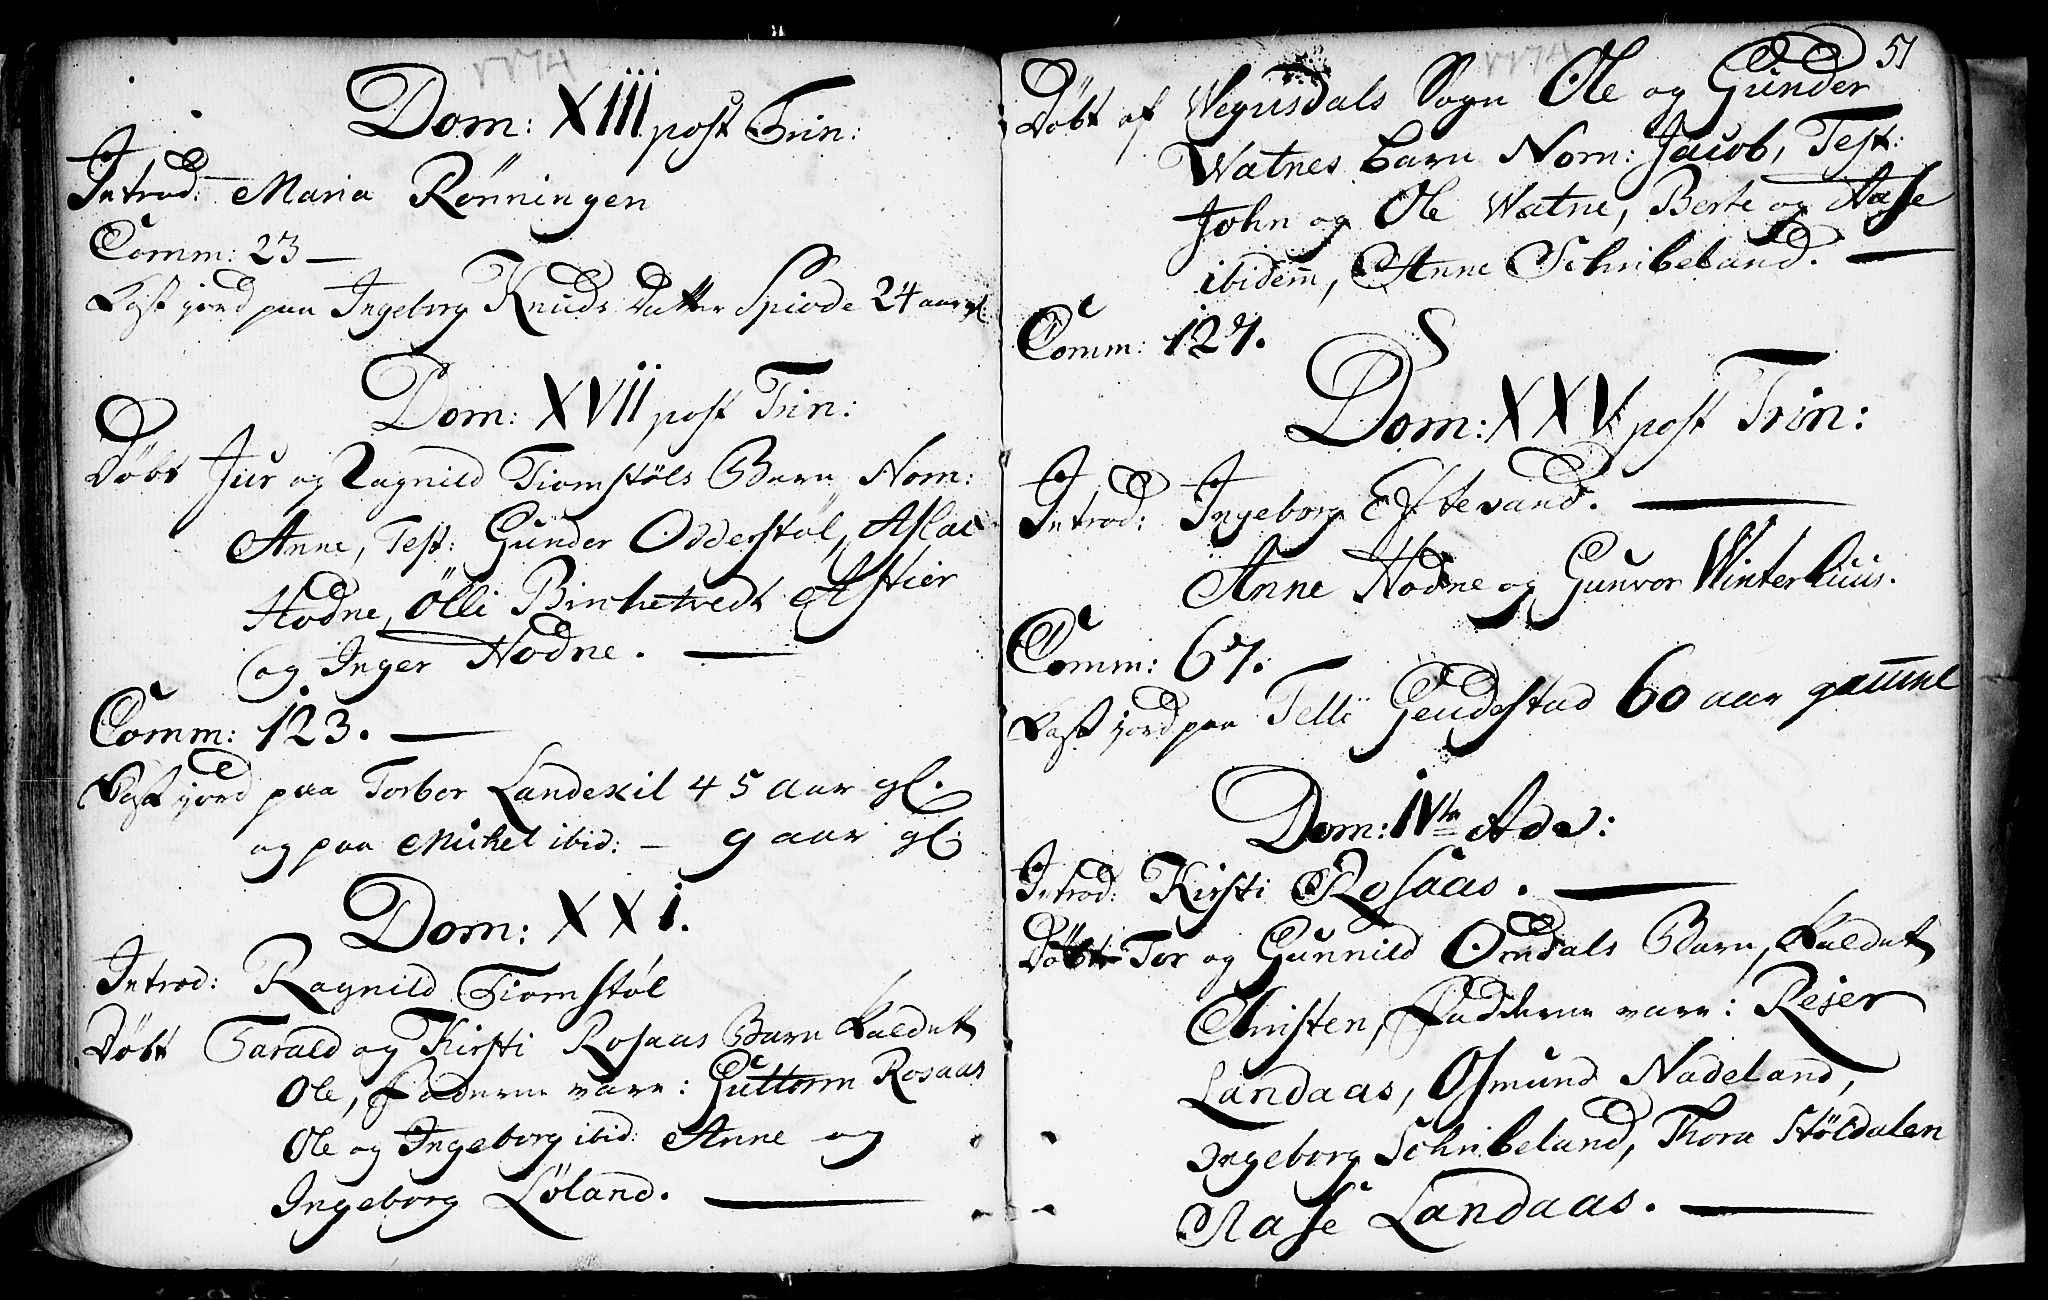 1774
Dom: XIII post Trin:
Introd: Maria Rönningen
Comm: 23 —
Kast jord paa Ingeborg Knuds Datter Spiode 24 aar gl:
Dom: XVII post Trin:
Döbt Jur og Ragnild Tiomstöls Barn Nom:
Anne, Test: Gunder Odderstöl, Aslac
Hodne, Ölli Birketvedt Astier
og Inger Hodne. —
Comm: 123. —
Kast jord paa Torbor Landexil 45 aar gl.
og paa Mickel ibid: — 9 aar gl:
Dom: XXI.
Introd: Ragnild Tiomstöl
Döbt Tarald og Kirsti Rosaas Barn kaldet
Ole, Fadderne vare: Guttorm Rosaas
Ole og Ingeborg ibid: Anne og
Ingeborg Löland. —
1774
51
Döbt af Wegusdals Sogn Ole og Gunder
Watnes barn Nom: Jacob, Test:
John og Ole Watne, Berte og Aase
ibidem, Anne Schribeland. —
Comm: 127.
Dom: XXV post Trin:
Introd: Ingeborg Eftevand. —
Anne Hodne og Gunvor Winterhuus.
Comm: 67.
Kast jord paa Telli Gendestad 60 aar gammel
Dom: IVta Adv:
Introd: Kirsti Rosaas. —
Döbt Tor og Gunnild Omdals Barn, kaldet
Christen, Fadderne vare: Rejer
Landaas, Osmund Nadeland,
Ingeborg Schribeland, Thora Stöldalen
Aase Landaas. —